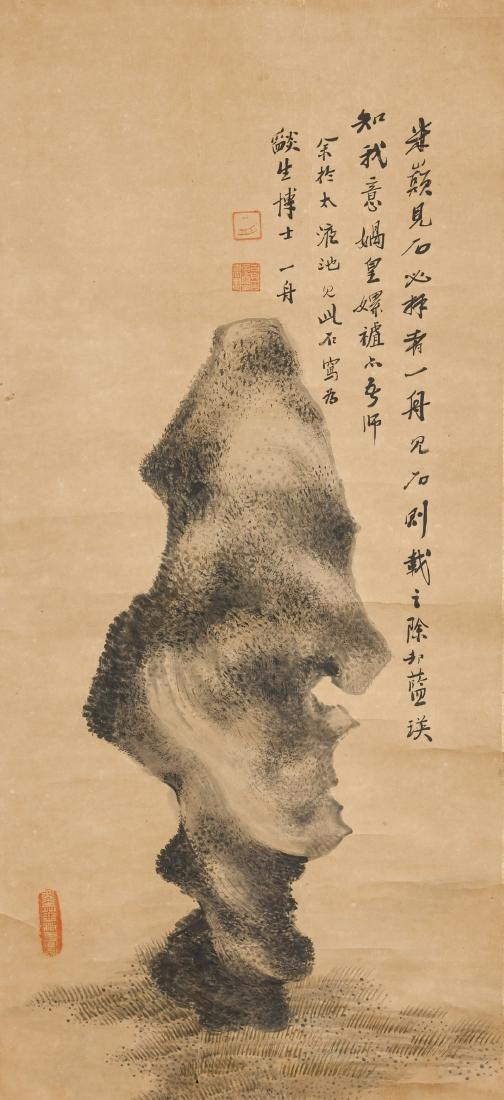 米巔見石必拜者一舟見石則載之除却藍瑛
知我意媧皇嫘祖亦吾師
余於太液池見此石寫為
燄生博士 一舟